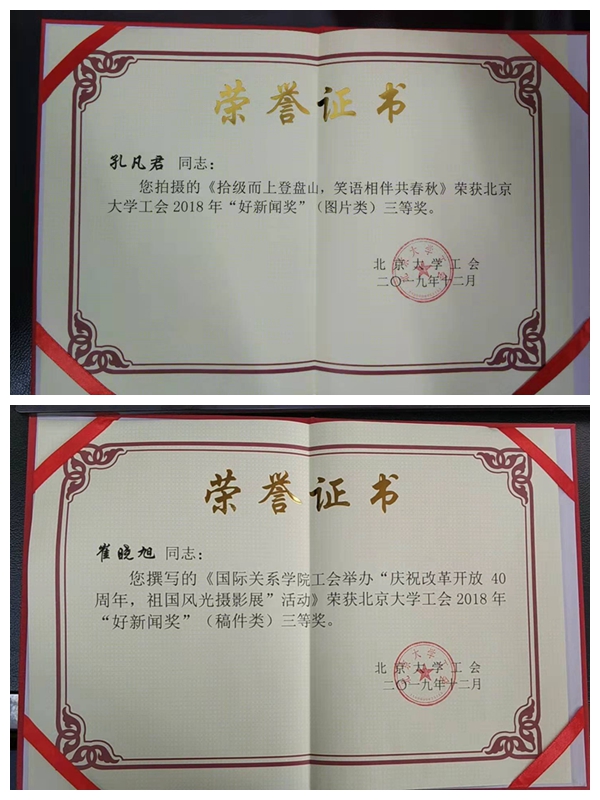 荣誉证书
孔凡君 同志：
您拍摄的《拾级而上登盘山，笑语相伴共春秋》荣获北京
大学工会2018年“好新闻奖”（图片类）三等奖。
北京大学工会
二〇一九年十二月
荣誉证书
崔晓旭 同志：
您撰写的《国际关系学院工会举办“庆祝改革开放 40
周年，祖国风光摄影展”活动》荣获北京大学工会2018年
“好新闻奖”（稿件类）三等奖。
北京大学工会
二〇一九年十二月